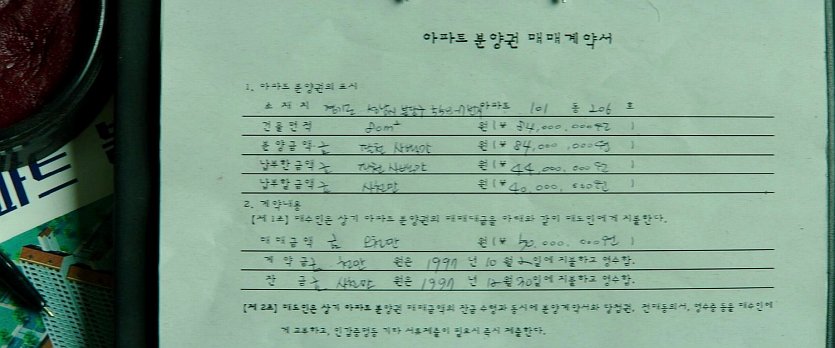 아파트 분양권 매매계약서
1. 아파트 분양권의 표시
소 재 지 경기도 성남시 분당구 아파트 101 동 206 호
건물면적 80m² 원(₩ 84,000,000원 )
분양금액 금 팔천 사백만 원(₩ 84,000,000원 )
납부한금액 금 사천 사백만 원(₩ 44,000,000원 )
납부할금액 금 사천만 원(₩ 40,000,000원 )
2. 계약내용
[제 1조] 매수인은 상기 아파트 분양권의 매매대금을 아래와 같이 매도인에게 지불한다.
매매금액 금 오천만 원(₩ 50,000,000원 )
계 약 금 금 천만 원은 1997 년 10 월 2일에 지불하고 영수함.
잔 금 금 사천만 원은 1997 년 12월 30일에 지불하고 영수함.
[제 2조] 매도인은 상기 아파트 분양권 매매금액의 잔금 수령과 동시에 분양계약서와 당첨권, 전매동의서, 영수증 등을 매수인에
게 교부하고, 인감증명등 기타 서류제출이 필요시 즉시 제출한다.
파트